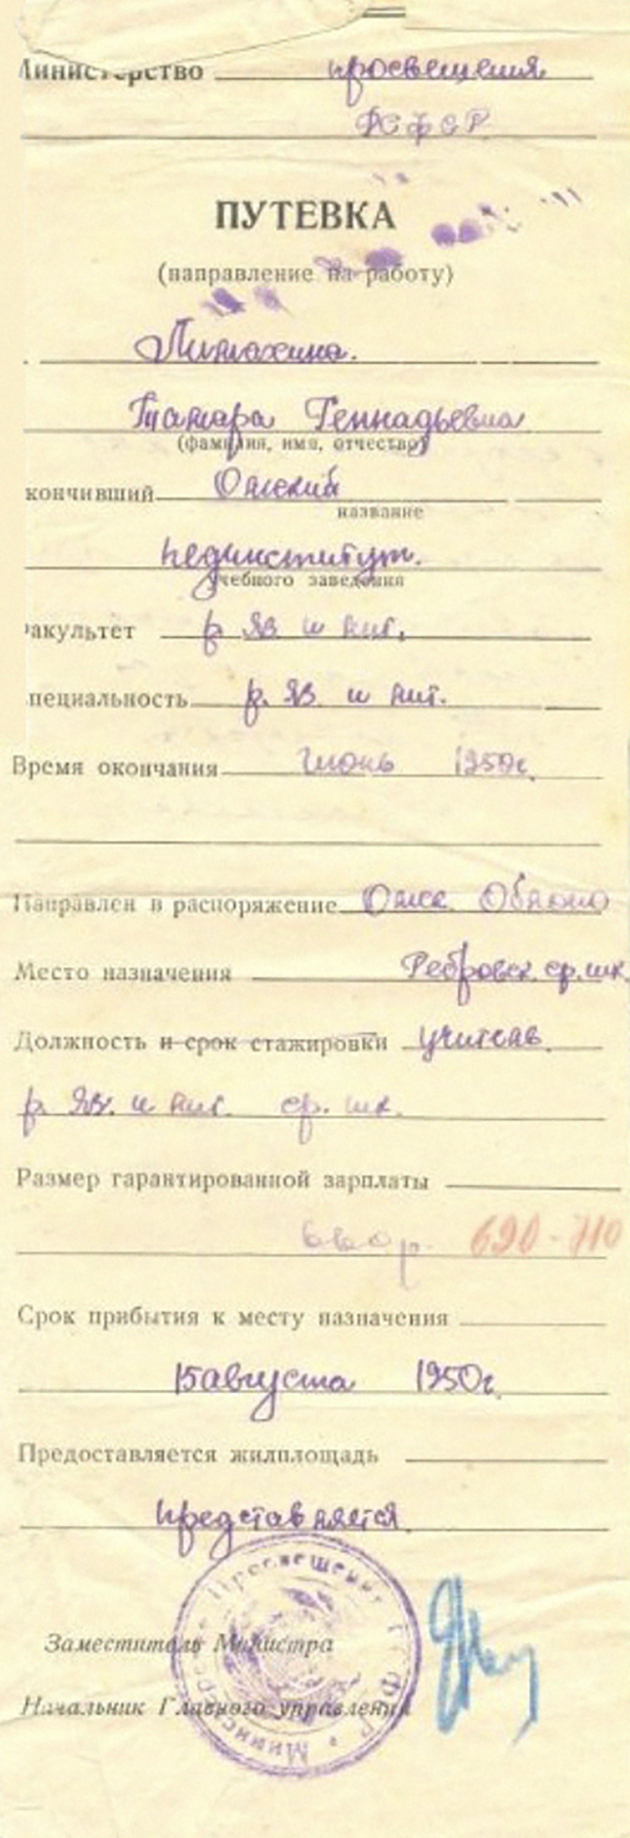 Министерство просвещения
РСФСР
ПУТЕВКА
(направление на работу)
Тамара Геннадьевна
(фамилия, имя, отчество)
кончивший Омский
название
пединститут.
учебного заведения
факультет р. яз и лит.
специальность р. яз и лит.
Время окончания Июнь 1950г.
Направлен в распоряжение Омск. Облоно
Место назначения ср. шк.
Должность и срок стажировки учитель
р. яз. и лит. ср. шк.
Размер гарантированной зарплаты
690-710
Срок прибытия к месту назначения
15 августа 1950г.
Предоставляется жилплощадь
представляется.
Заместитель Министра
Начальник Главного управления
Министерство Просвещения РСФСР